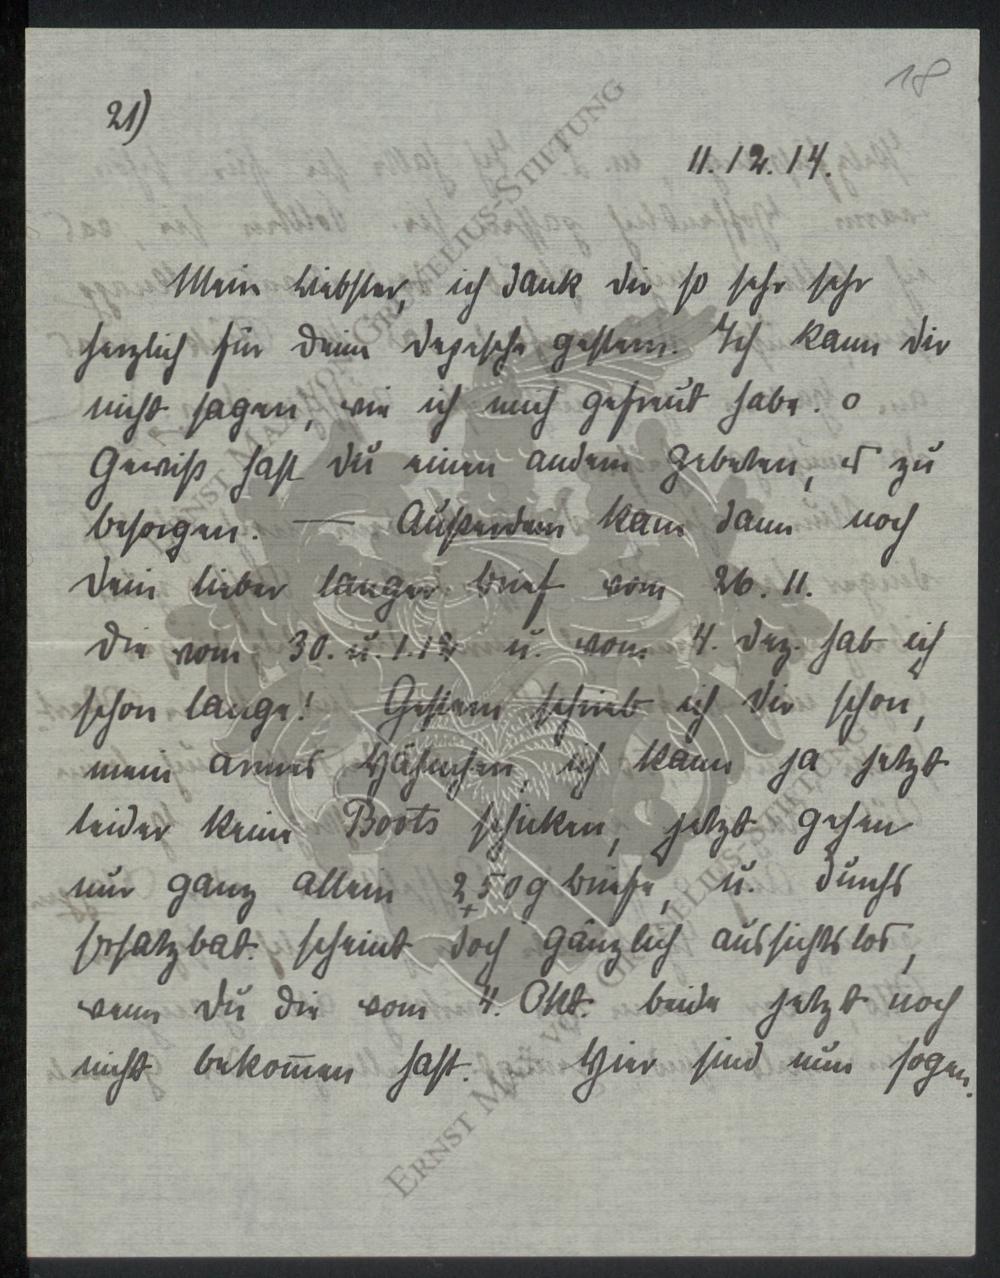 18
21)
11.12.14.
Mein Liebster, ich dank dir so sehr sehr
herzlich für deine Depesche gestern. Ich kann dir
nicht sagen, wie ich mich gefreut habe. o
Gewiß hast du einen andern gebeten, zu
besorgen. — Außerdem kam dann noch
dein lieber langer Brief vom 26.11.
Die vom 30. u. 1.12 u. vom 4. Dez. hab ich
schon lange! Gestern schrieb ich dir schon,
mein armes Hähnchen, ich kann ja jetzt
leider keine Boots schicken, jetzt gehen
nur ganz allein 250g Briefe, u. durchs
Ersatzbat. scheint doch gänzlich aussichtslos,
wenn du die vom 4. Okt. beide jetzt noch
nicht bekom̅en hast. Hier sind nun sogen.
ERNST MAX VON GRUNELIUS-STIFTUNG
ERNST MAX VON GRUNELIUS-STIFTUNG